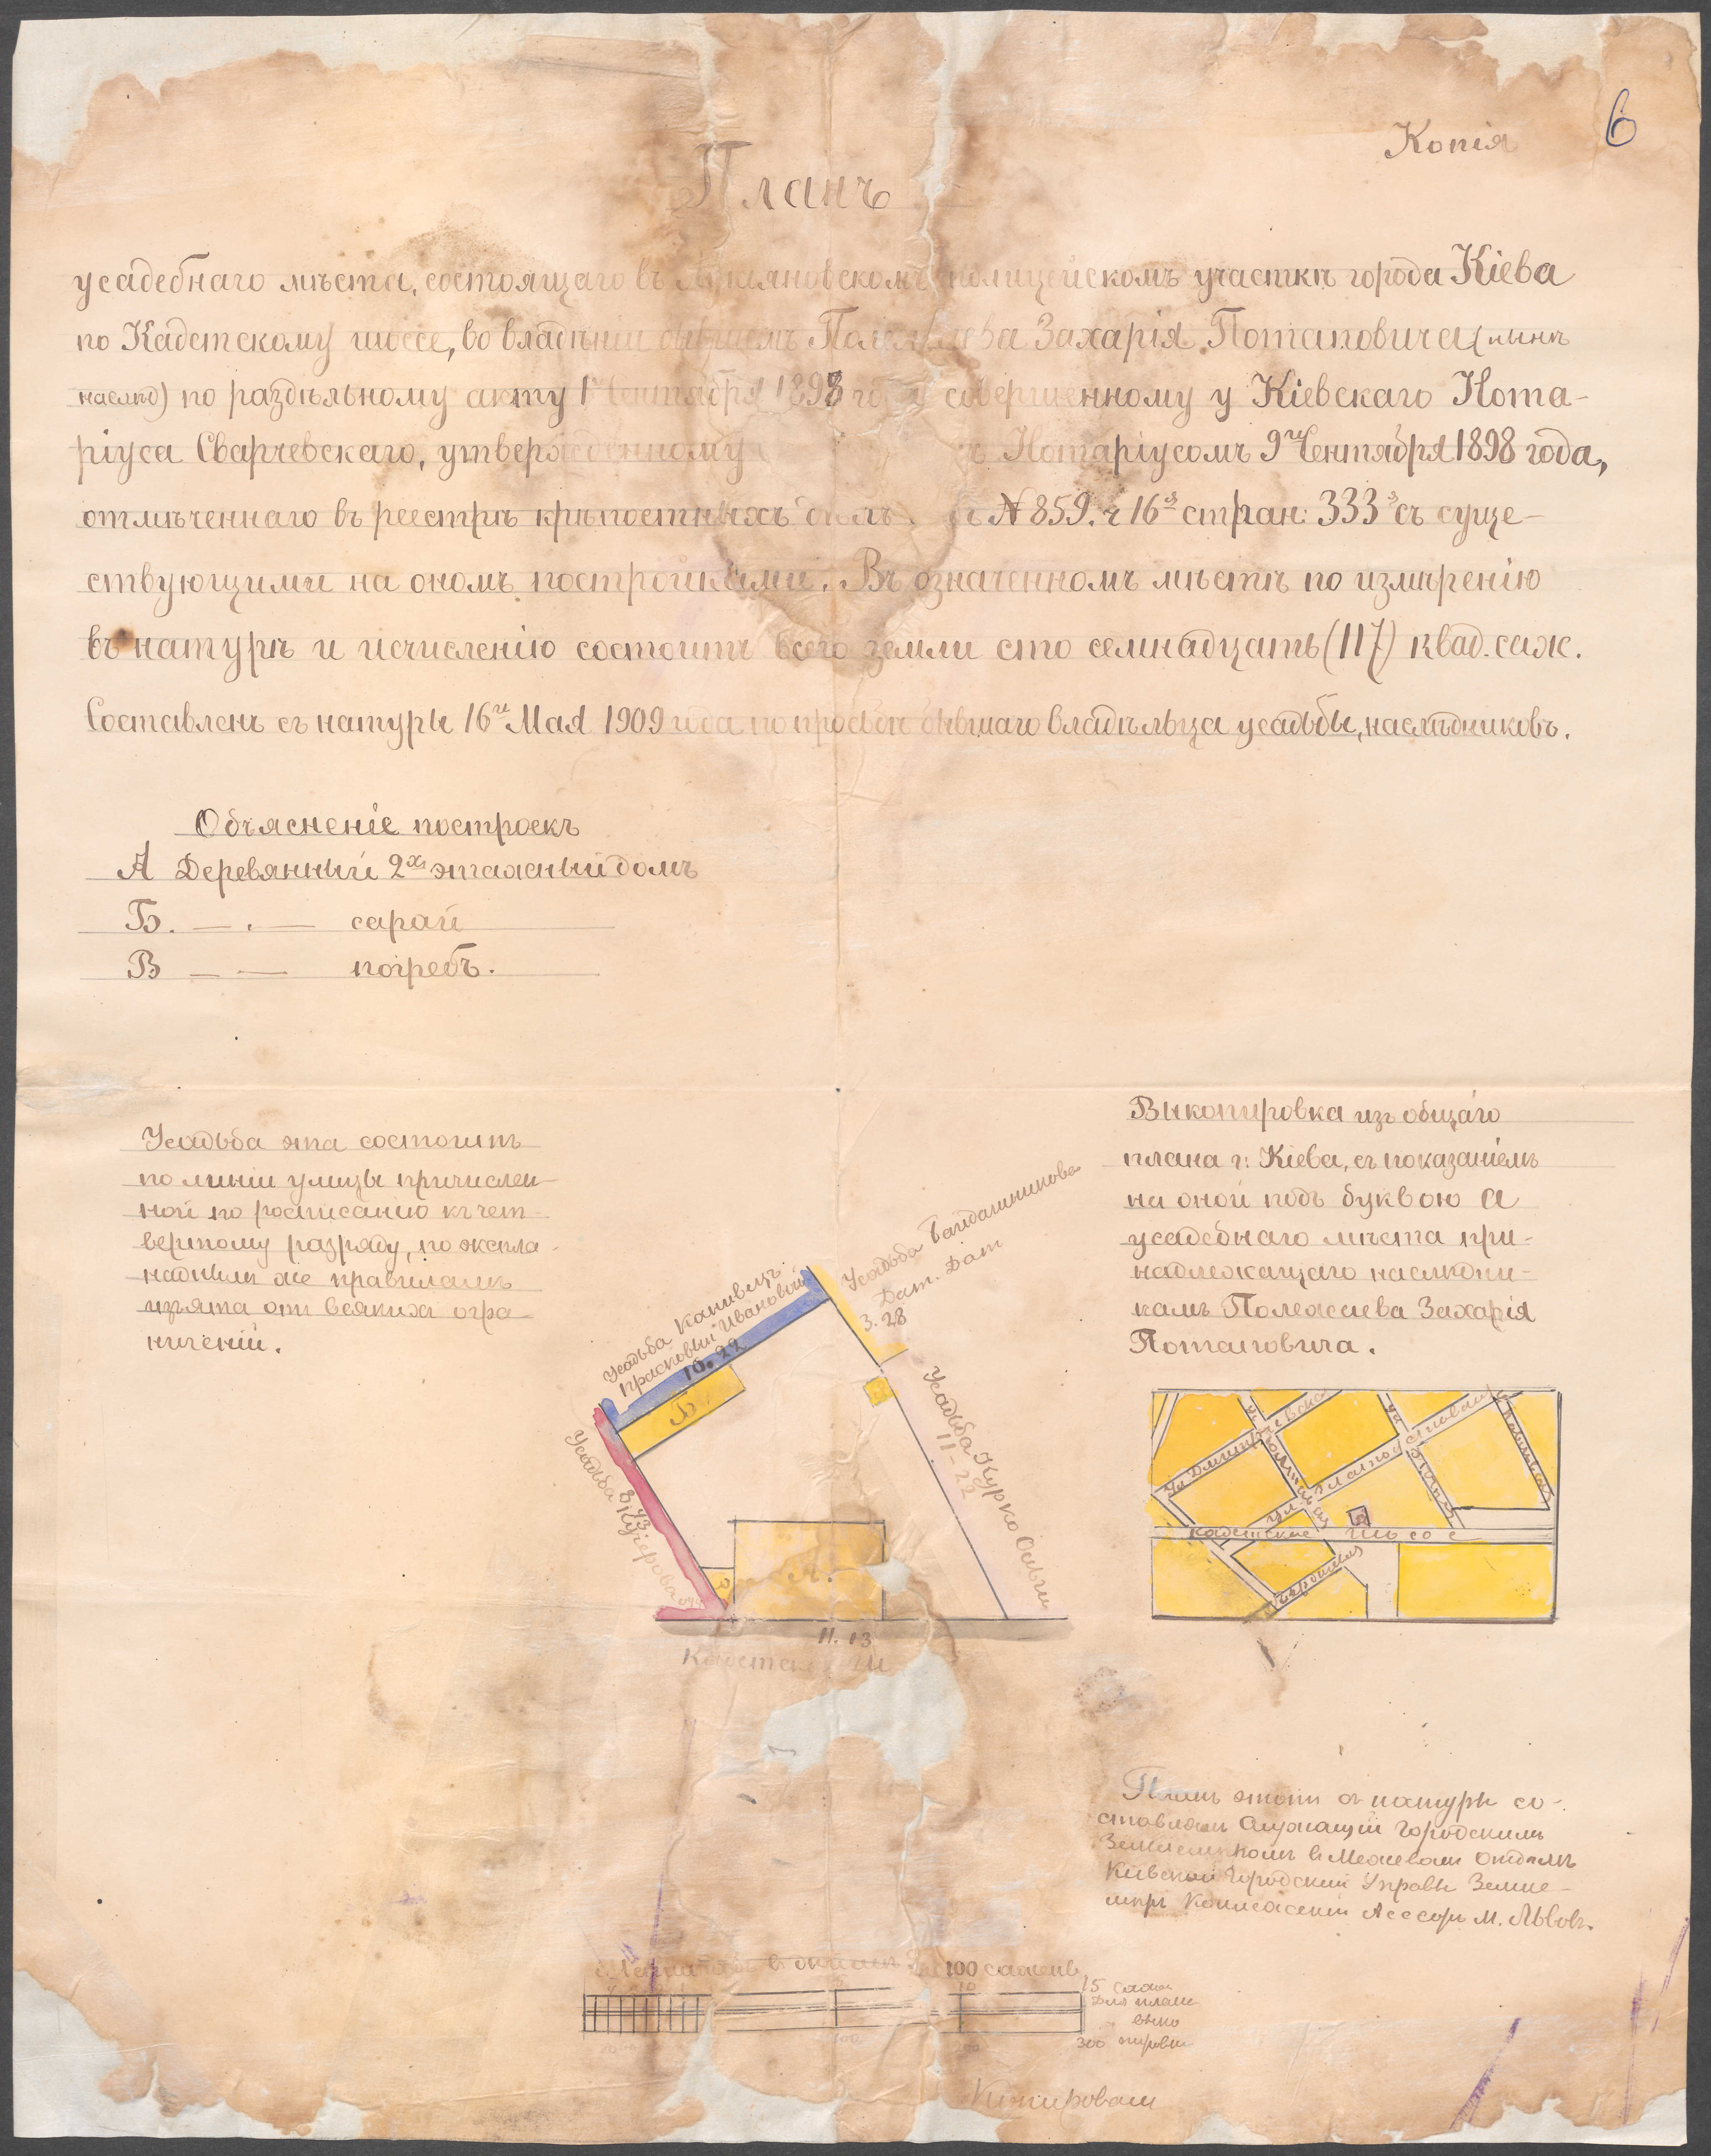 Копія
6
Планъ
усадебнаго мѣста, состоящаго въ Лукьяновскомъ полицейскомъ участкѣ города Кіева
по Кадетскому шоссе, во владѣніи бывшемъ Захарія Потаповича (нынѣ
наслѣд) по раздѣльному акту 1го Сентября 1898 года совершенному у Кіевскаго Нота-
ріуса Сварчевскаго, утвержденному Нотаріусомъ 9го Сентября 1898 года,
отмѣченнаго въ реестрѣ крѣпостныхъ дѣлъ № 859. ч 16я стран: 333я съ суще-
ствующими на ономъ постройками. Въ означенномъ мѣстѣ по измѣренію
въ натурѣ и исчисленію состоитъ всего земли сто семнадцать (117) квад. саж.
Составленъ съ натуры 16го Мая 1909 года по просьбѣ бывшаго владѣльца усадьбы, наслѣдниковъ.
Объясненіе построекъ
А Деревянный 2хъ этажный домъ
Б. — . — сарай
В — — погребъ.
Усадьба эта состоитъ
по линіи улицы причислен-
ной по росписанію къ чет-
вертому разряду, по экспла-
наднымъ же правиламъ
изъята отъ всякихъ огра-
ниченій.
Выкопировка изъ общаго
плана г: Кіева, съ показаніемъ
на оной подъ буквою а
усадебнаго мѣста при-
надлежащаго наслѣдни-
камъ Полежаева Захарія
Потаповича.
Усадьба Канивецъ
Прасковьи Ивановой
10. 22
Усадьба Байдашникова
Дат. Дот
3. 28
Б
Усадьба Курко Ольги
11-22
Усадьба Кучерова
8 43
А.
11. 13
Кадетск Ш
ул Дмитріевская
ул. Златоустовская
Павловская
Кадетское Шоссе
а
Планъ этотъ съ натуры со-
ставлялъ Служащій Городскимъ
Землемѣромъ въ Межевомъ Отдѣлѣ
Кіевской Городской Управы Земле-
мѣръ Коллежскій Ассесоръ М. Львовъ.
Масштабъ въ 100 сажень
5 10 15 саж
для плана
100 200 300 выкопировки
Копировалъ